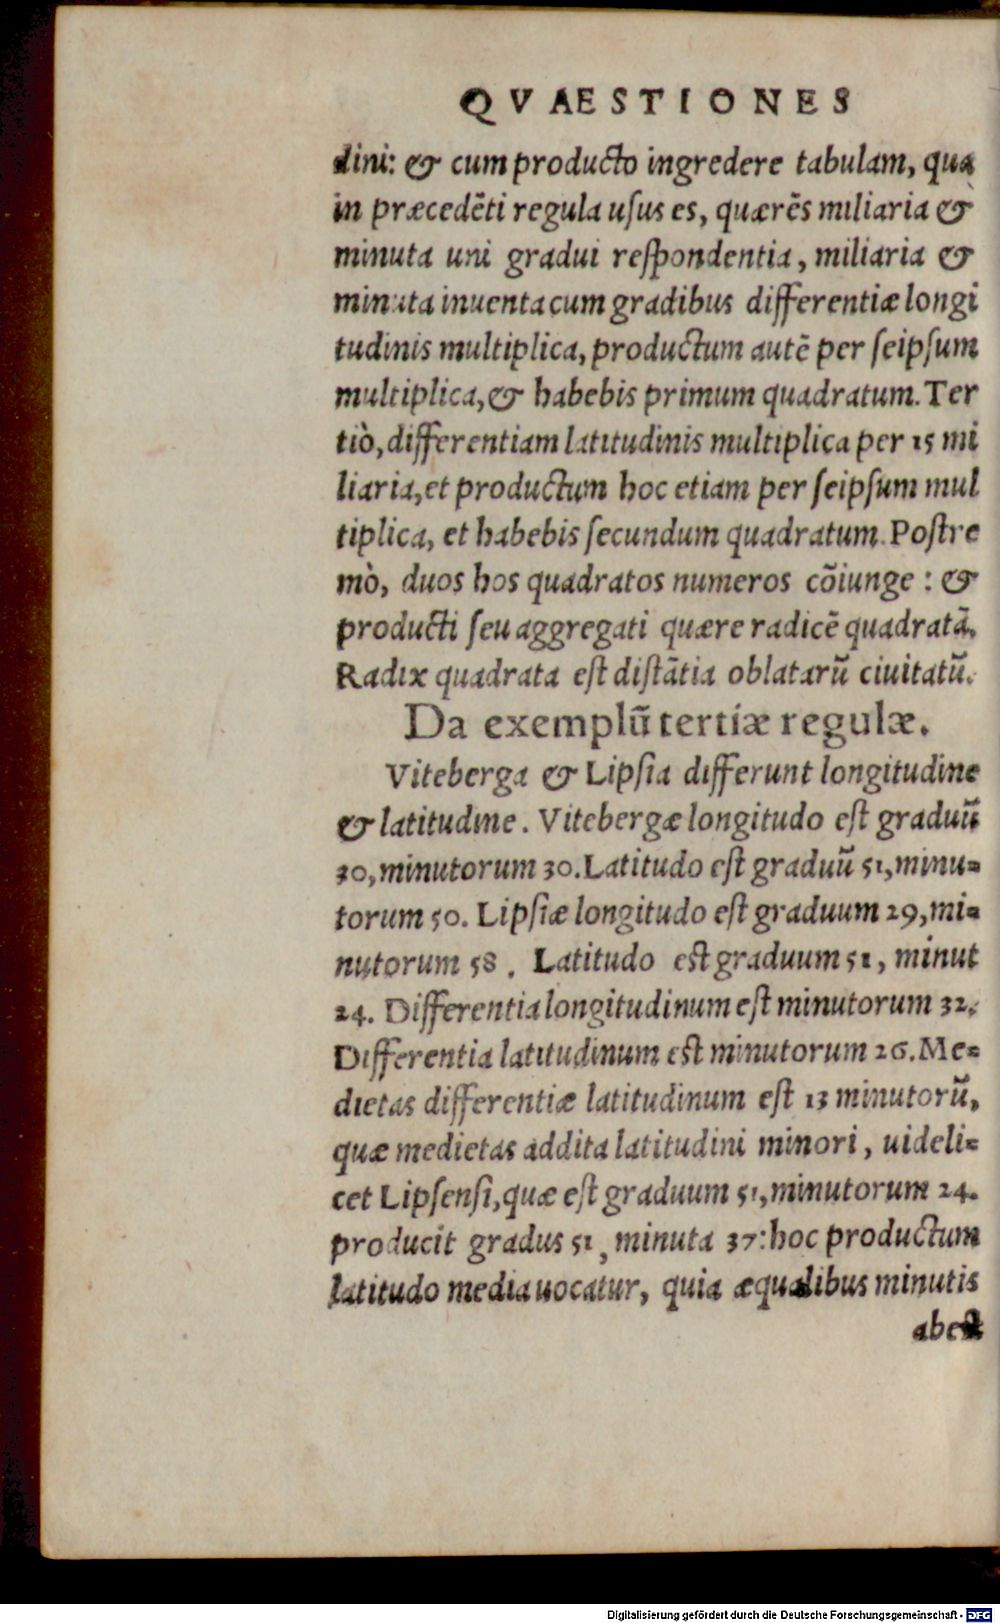 QVAESTIONES
dini: & cum producto ingredere tabulam, qua
in præcedẽti regula usus es, quærẽs miliaria &
minuta uni gradui reſpondentia, miliaria &
minuta inuenta cum gradibus differentiæ longi
tudinis multiplica, productum autẽ per ſeipſum
multiplica, & habebis primum quadratum. Ter
tiò, differentiam latitudinis multiplica per 15 mi
liaria, et productum hoc etiam per ſeipſum mul
tiplica, et habebis ſecundum quadratum. Poſtre
mò, duos hos quadratos numeros cõiunge : &
producti ſeu aggregati quære radicẽ quadratã.
Radix quadrata eſt diſtãtia oblatarũ ciuitatũ.
Da exemplũ tertiæ regulæ.
Viteberga & Lipſia differunt longitudine
& latitudine. Vitebergæ longitudo eſt graduũ
30, minutorum 30. Latitudo eſt graduũ 51, minu-
torum 50. Lipſiæ longitudo eſt graduum 29, mi-
nutorum 58. Latitudo eſt graduum 51, minut
24. Differentia longitudinum eſt minutorum 32.
Differentia latitudinum eſt minutorum 26. Me-
dietas differentiæ latitudinum eſt 13 minutorũ,
quæ medietas addita latitudini minori, uideli-
cet Lipſenſi, quæ eſt graduum 51, minutorum 24.
producit gradus 51, minuta 37: hoc productum
latitudo media uocatur, quia æqualibus minutis
abeſt
Digitalisierung gefördert durch die Deutsche Forschungsgemeinschaft - DFG